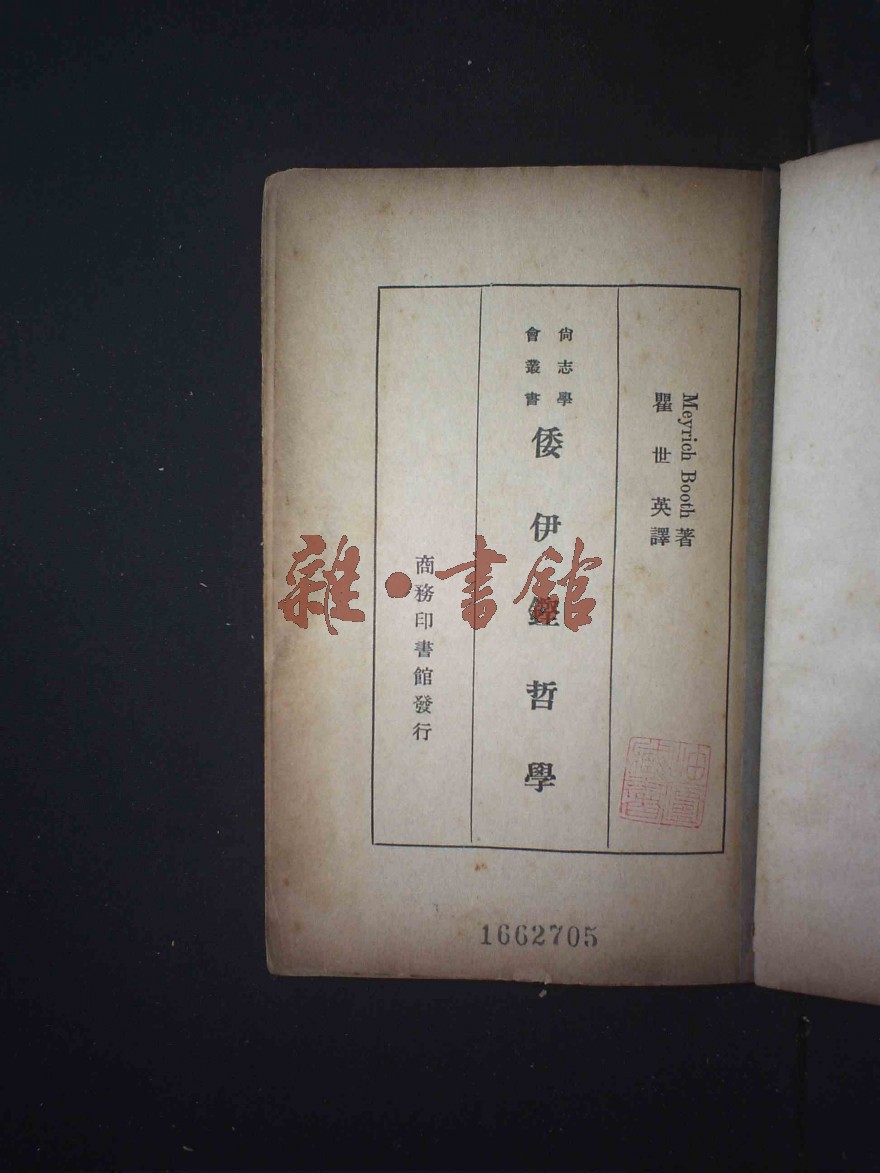 Meyrich Booth 著
瞿世英譯
尙志學
會叢書
倭伊鏗哲學
商務印書館發行
雜·書館
1662705